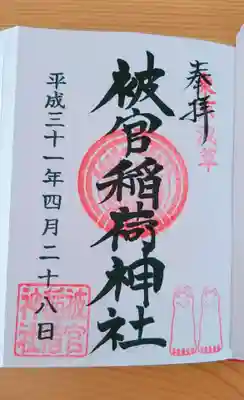 奉拝
被官稲荷神社
平成三十一年四月二十八日
被官
稲荷
神社